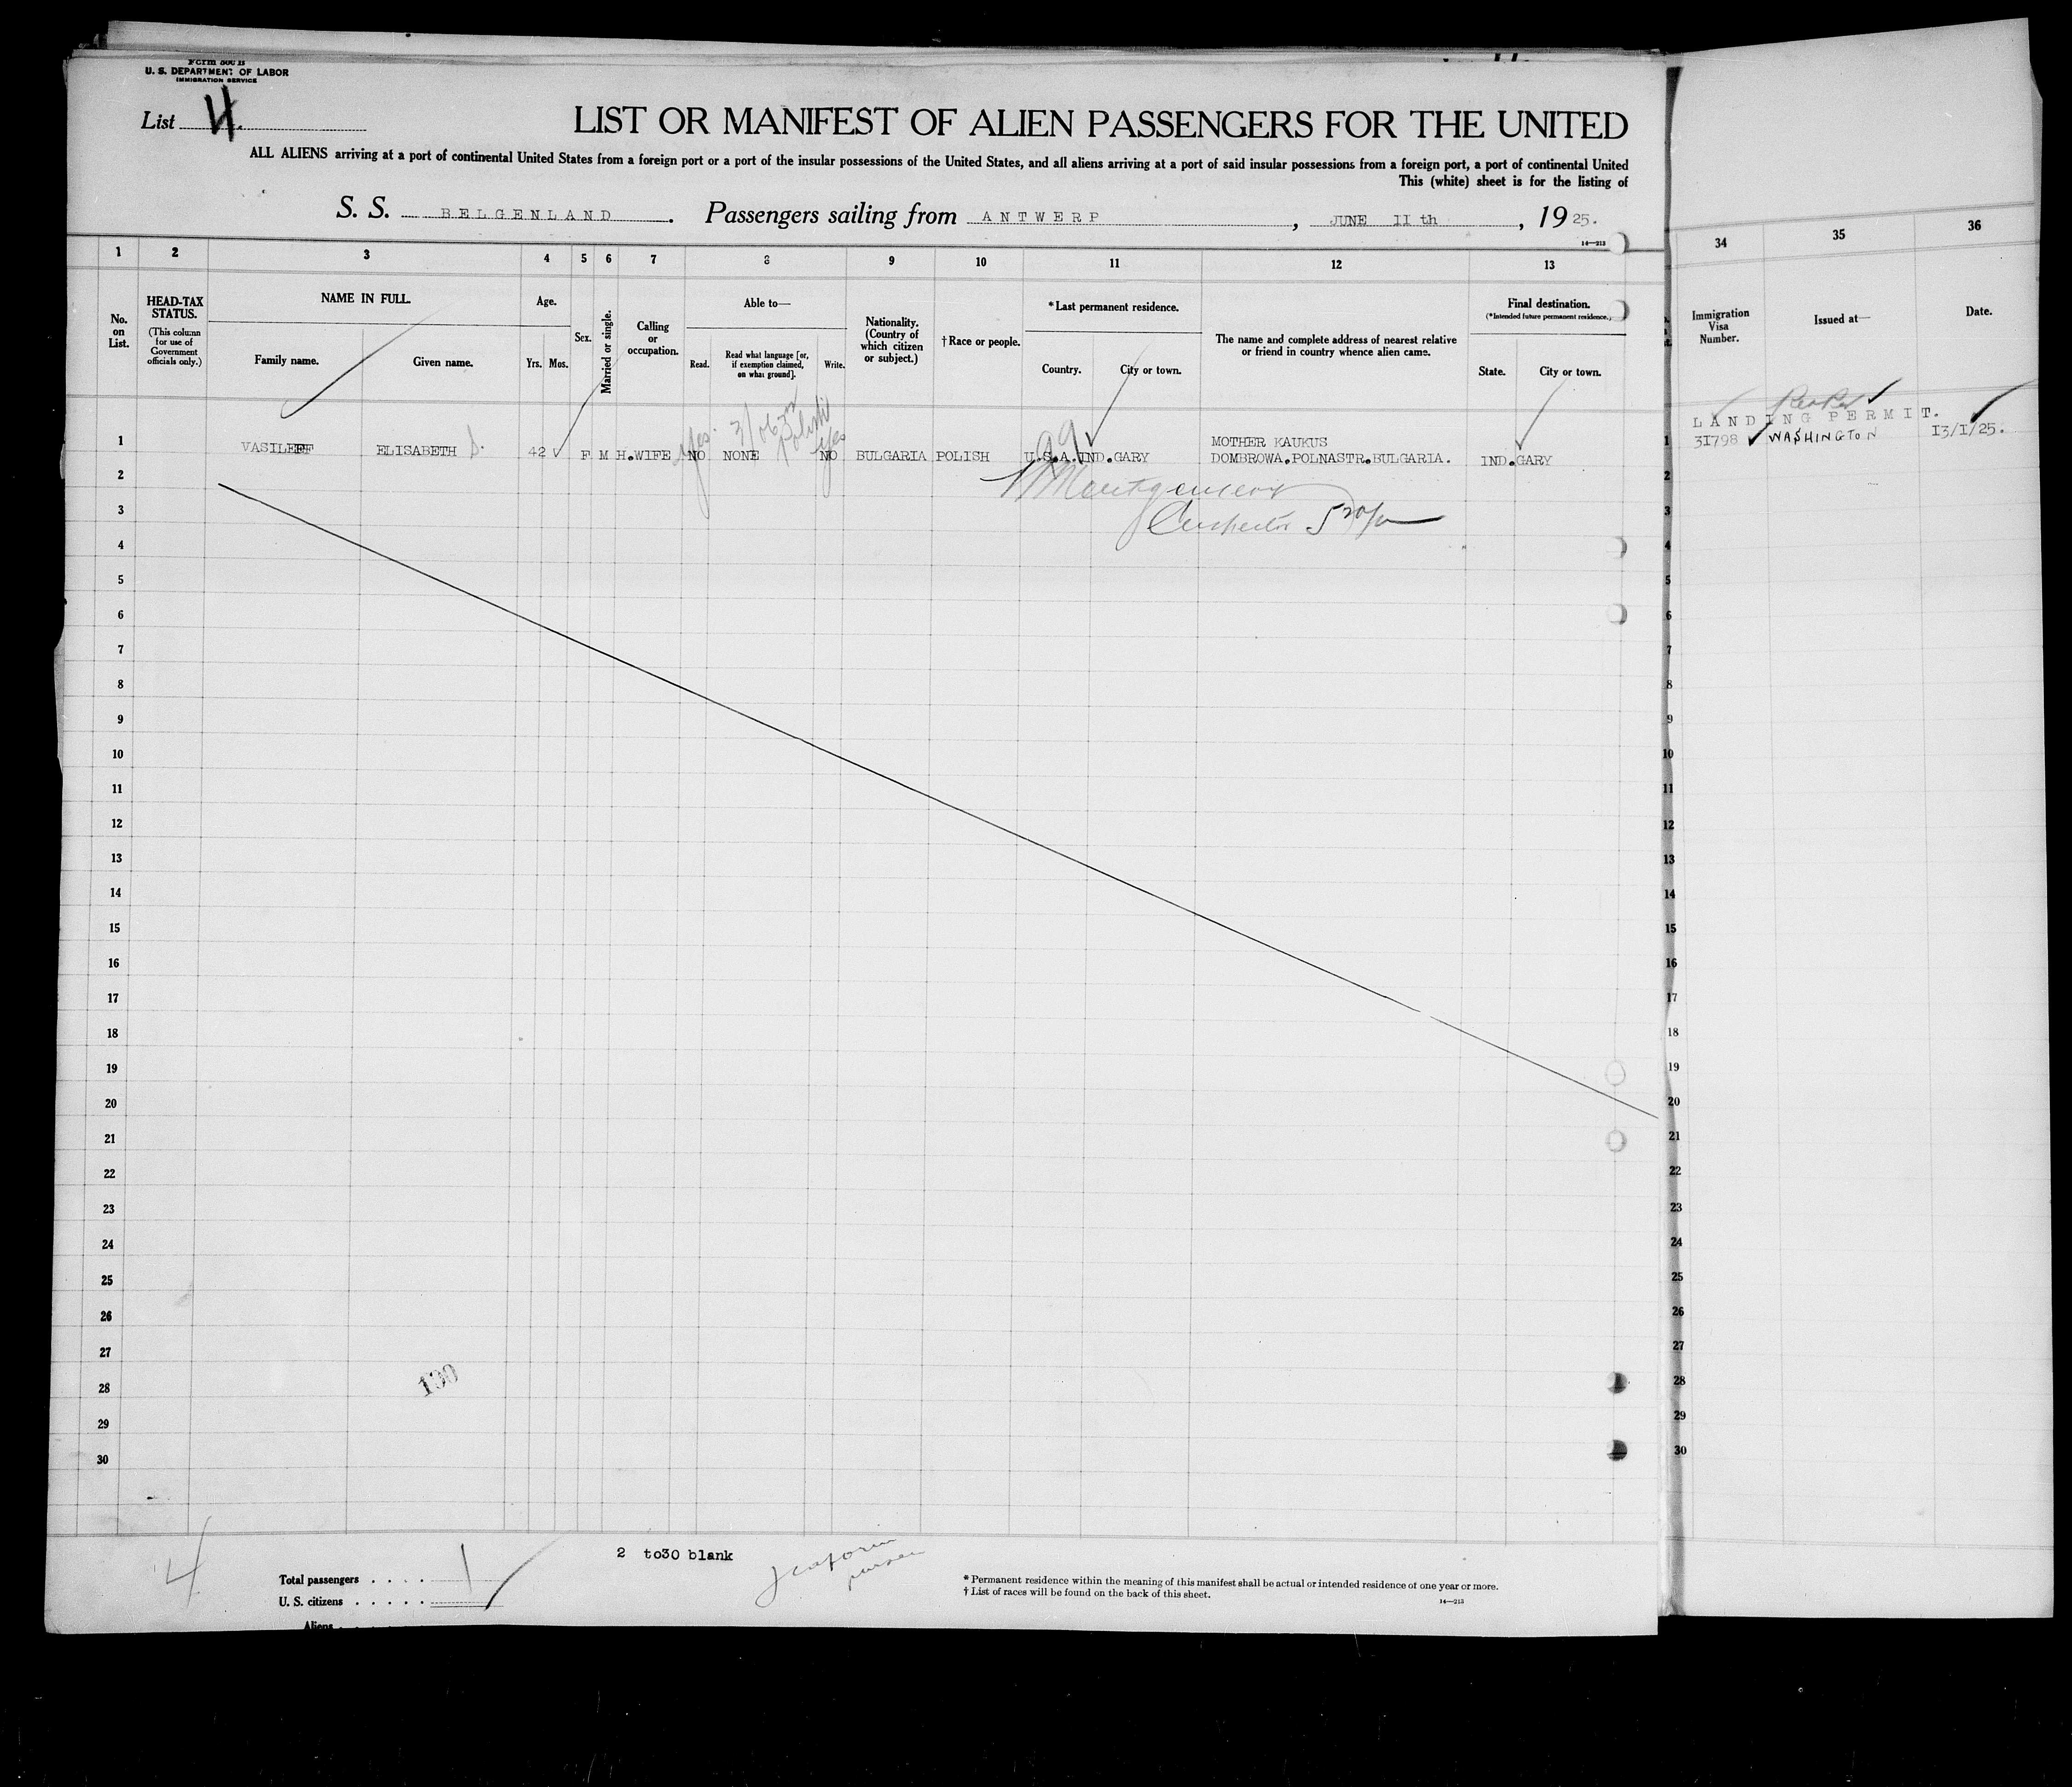 Form 500 B
U. S. DEPARTMENT OF LABOR
IMMIGRATION SERVICE
List 4.
LIST OR MANIFEST OF ALIEN PASSENGERS FOR THE UNITED
ALL ALIENS arriving at a port of continental United States from a foreign port or a port of the insular possessions of the United States, and all aliens arriving at a port of said insular possessions from a foreign port, a port of continental United
This (white) sheet is for the listing of
S. S. BELGENLAND. Passengers sailing from ANTWERP, JUNE 11 th, 19 25.
14—213
1 2 3 4 5 6 7 8 9 10 11 12 13 34 35 36
No. on List.
HEAD-TAX STATUS.
(This column for use of Government officials only.)
NAME IN FULL.
Family name. Given name.
Age.
Yrs. Mos.
Sex.
Married or single.
Calling or occupation.
Able to—
Read. Read what language [or, if exemption claimed, on what ground]. Write.
Nationality. (Country of which citizen or subject.)
† Race or people.
* Last permanent residence.
Country. City or town.
The name and complete address of nearest relative or friend in country whence alien came.
Final destination.
(* Intended future permanent residence.)
State. City or town.
Immigration Visa Number.
Issued at—
Date.
LANDING PERMIT.
1 VASILEFF ELISABETH 42 F M H.WIFE NO NONE NO BULGARIA POLISH U.S.A. IND.GARY MOTHER KAUKUS
DOMBROWA.POLNASTR.BULGARIA. IND.GARY 1 31798 WASHINGTON 13/1/25.
Yes Polish Yes
2 2
Montgomery
3 3
Inspector
4 4
5 5
6 6
7 7
8 8
9 9
10 10
11 11
12 12
13 13
14 14
15 15
16 16
17 17
18 18
19 19
20 20
21 21
22 22
23 23
24 24
25 25
26 26
27 27
28 28
29 29
30 30
130
4
2 to30 blank
Total passengers . . . . 1
U. S. citizens . . . . .
Aliens
* Permanent residence within the meaning of this manifest shall be actual or intended residence of one year or more.
† List of races will be found on the back of this sheet.
14—213